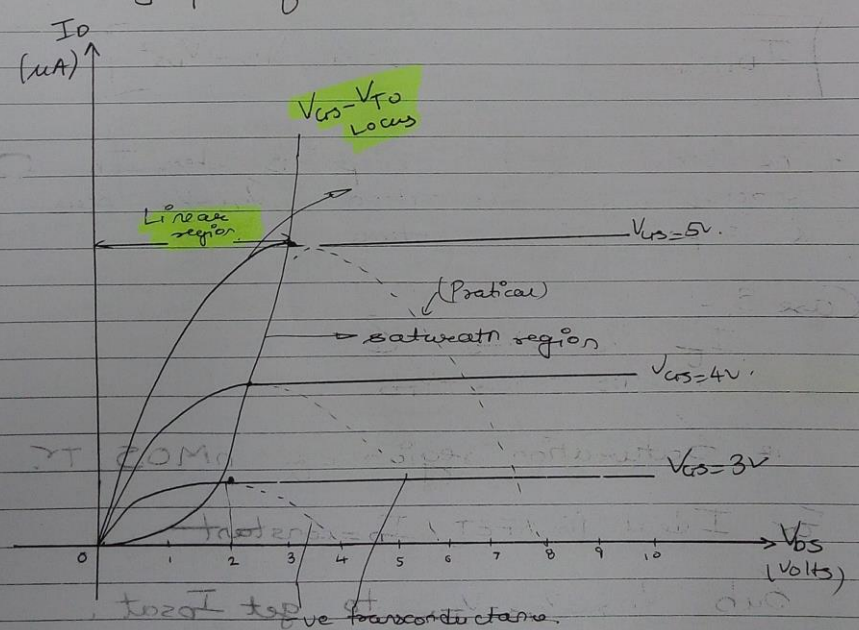 I_D
(μA)
V_GS-V_TO
Locus
Linear
region
V_GS=5V.
(Pratical)
saturatn region
V_GS=4V.
V_GS=3V
0 1 2 3 4 5 6 7 8 9 10
V_DS
(Volts)
-ve transconductane.